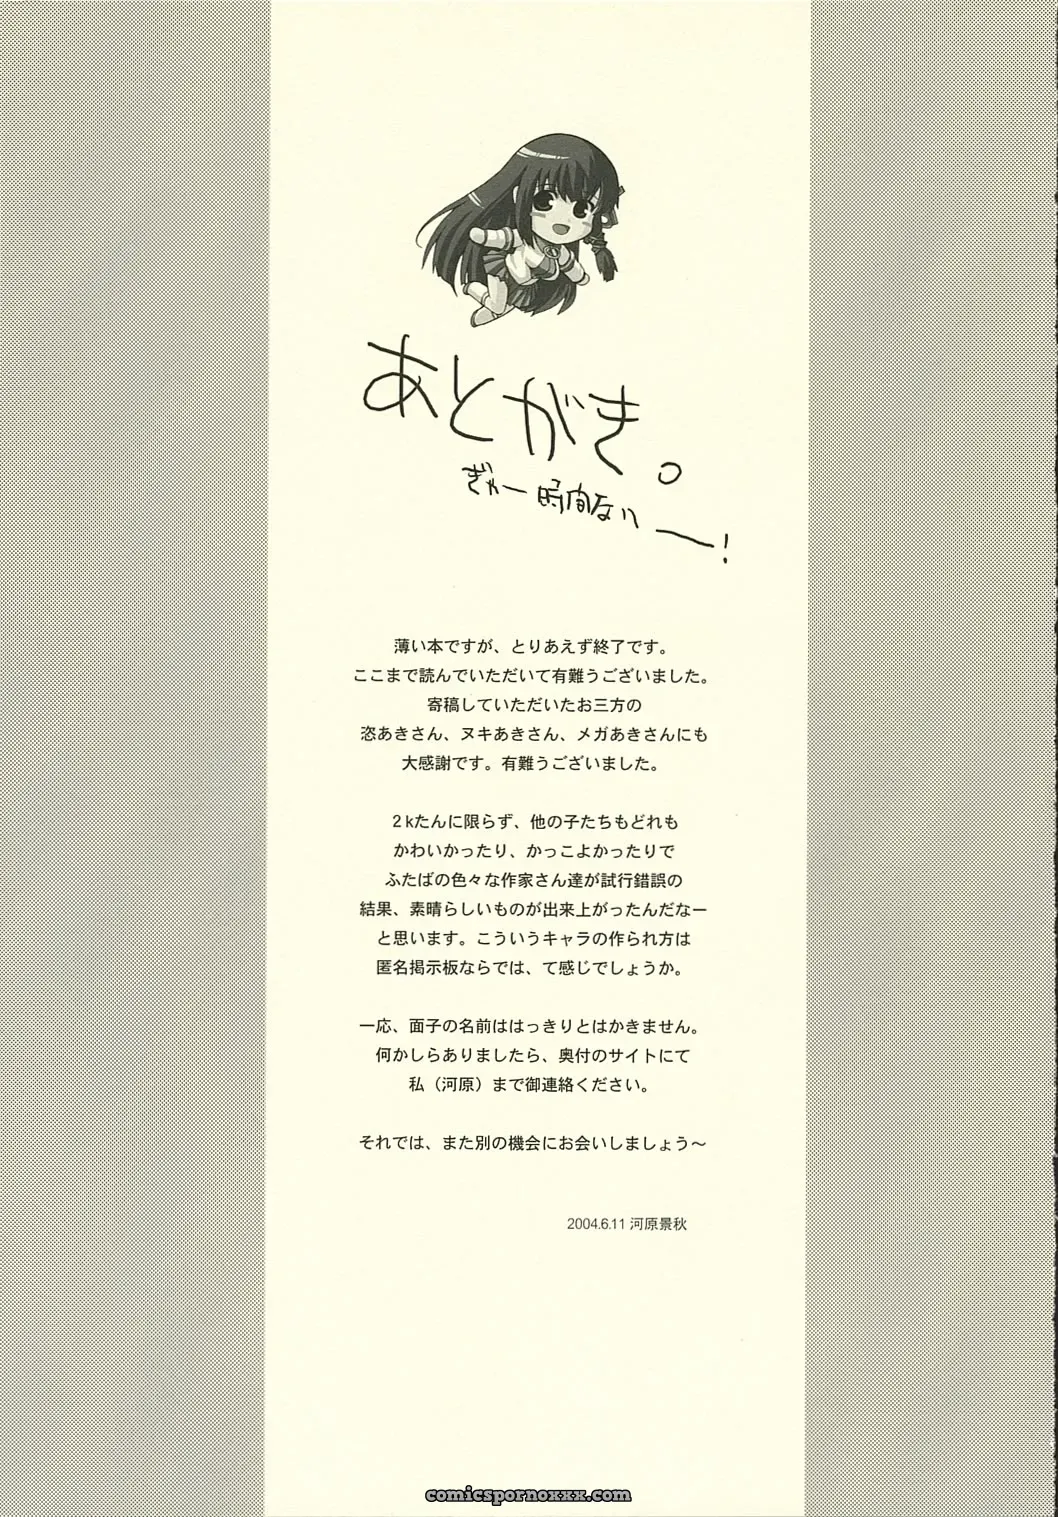 あとがき。
ぎゃー時間ないー!
薄い本ですが、とりあえず終了です。
ここまで読んでいただいて有難うございました。
寄稿していただいたお三方の
恣あきさん、ヌキあきさん、メガあきさんにも
大感謝です。有難うございました。
2kたんに限らず、他の子たちもどれも
かわいかったり、かっこよかったりで
ふたばの色々な作家さん達が試行錯誤の
結果、素晴らしいものが出来上がったんだなー
と思います。こういうキャラの作られ方は
匿名掲示板ならでは、て感じでしょうか。
一応、面子の名前ははっきりとはかきません。
何かしらありましたら、奥付のサイトにて
私（河原）まで御連絡ください。
それでは、また別の機会にお会いしましょう〜
2004.6.11 河原景秋
comicspornoxxx.com